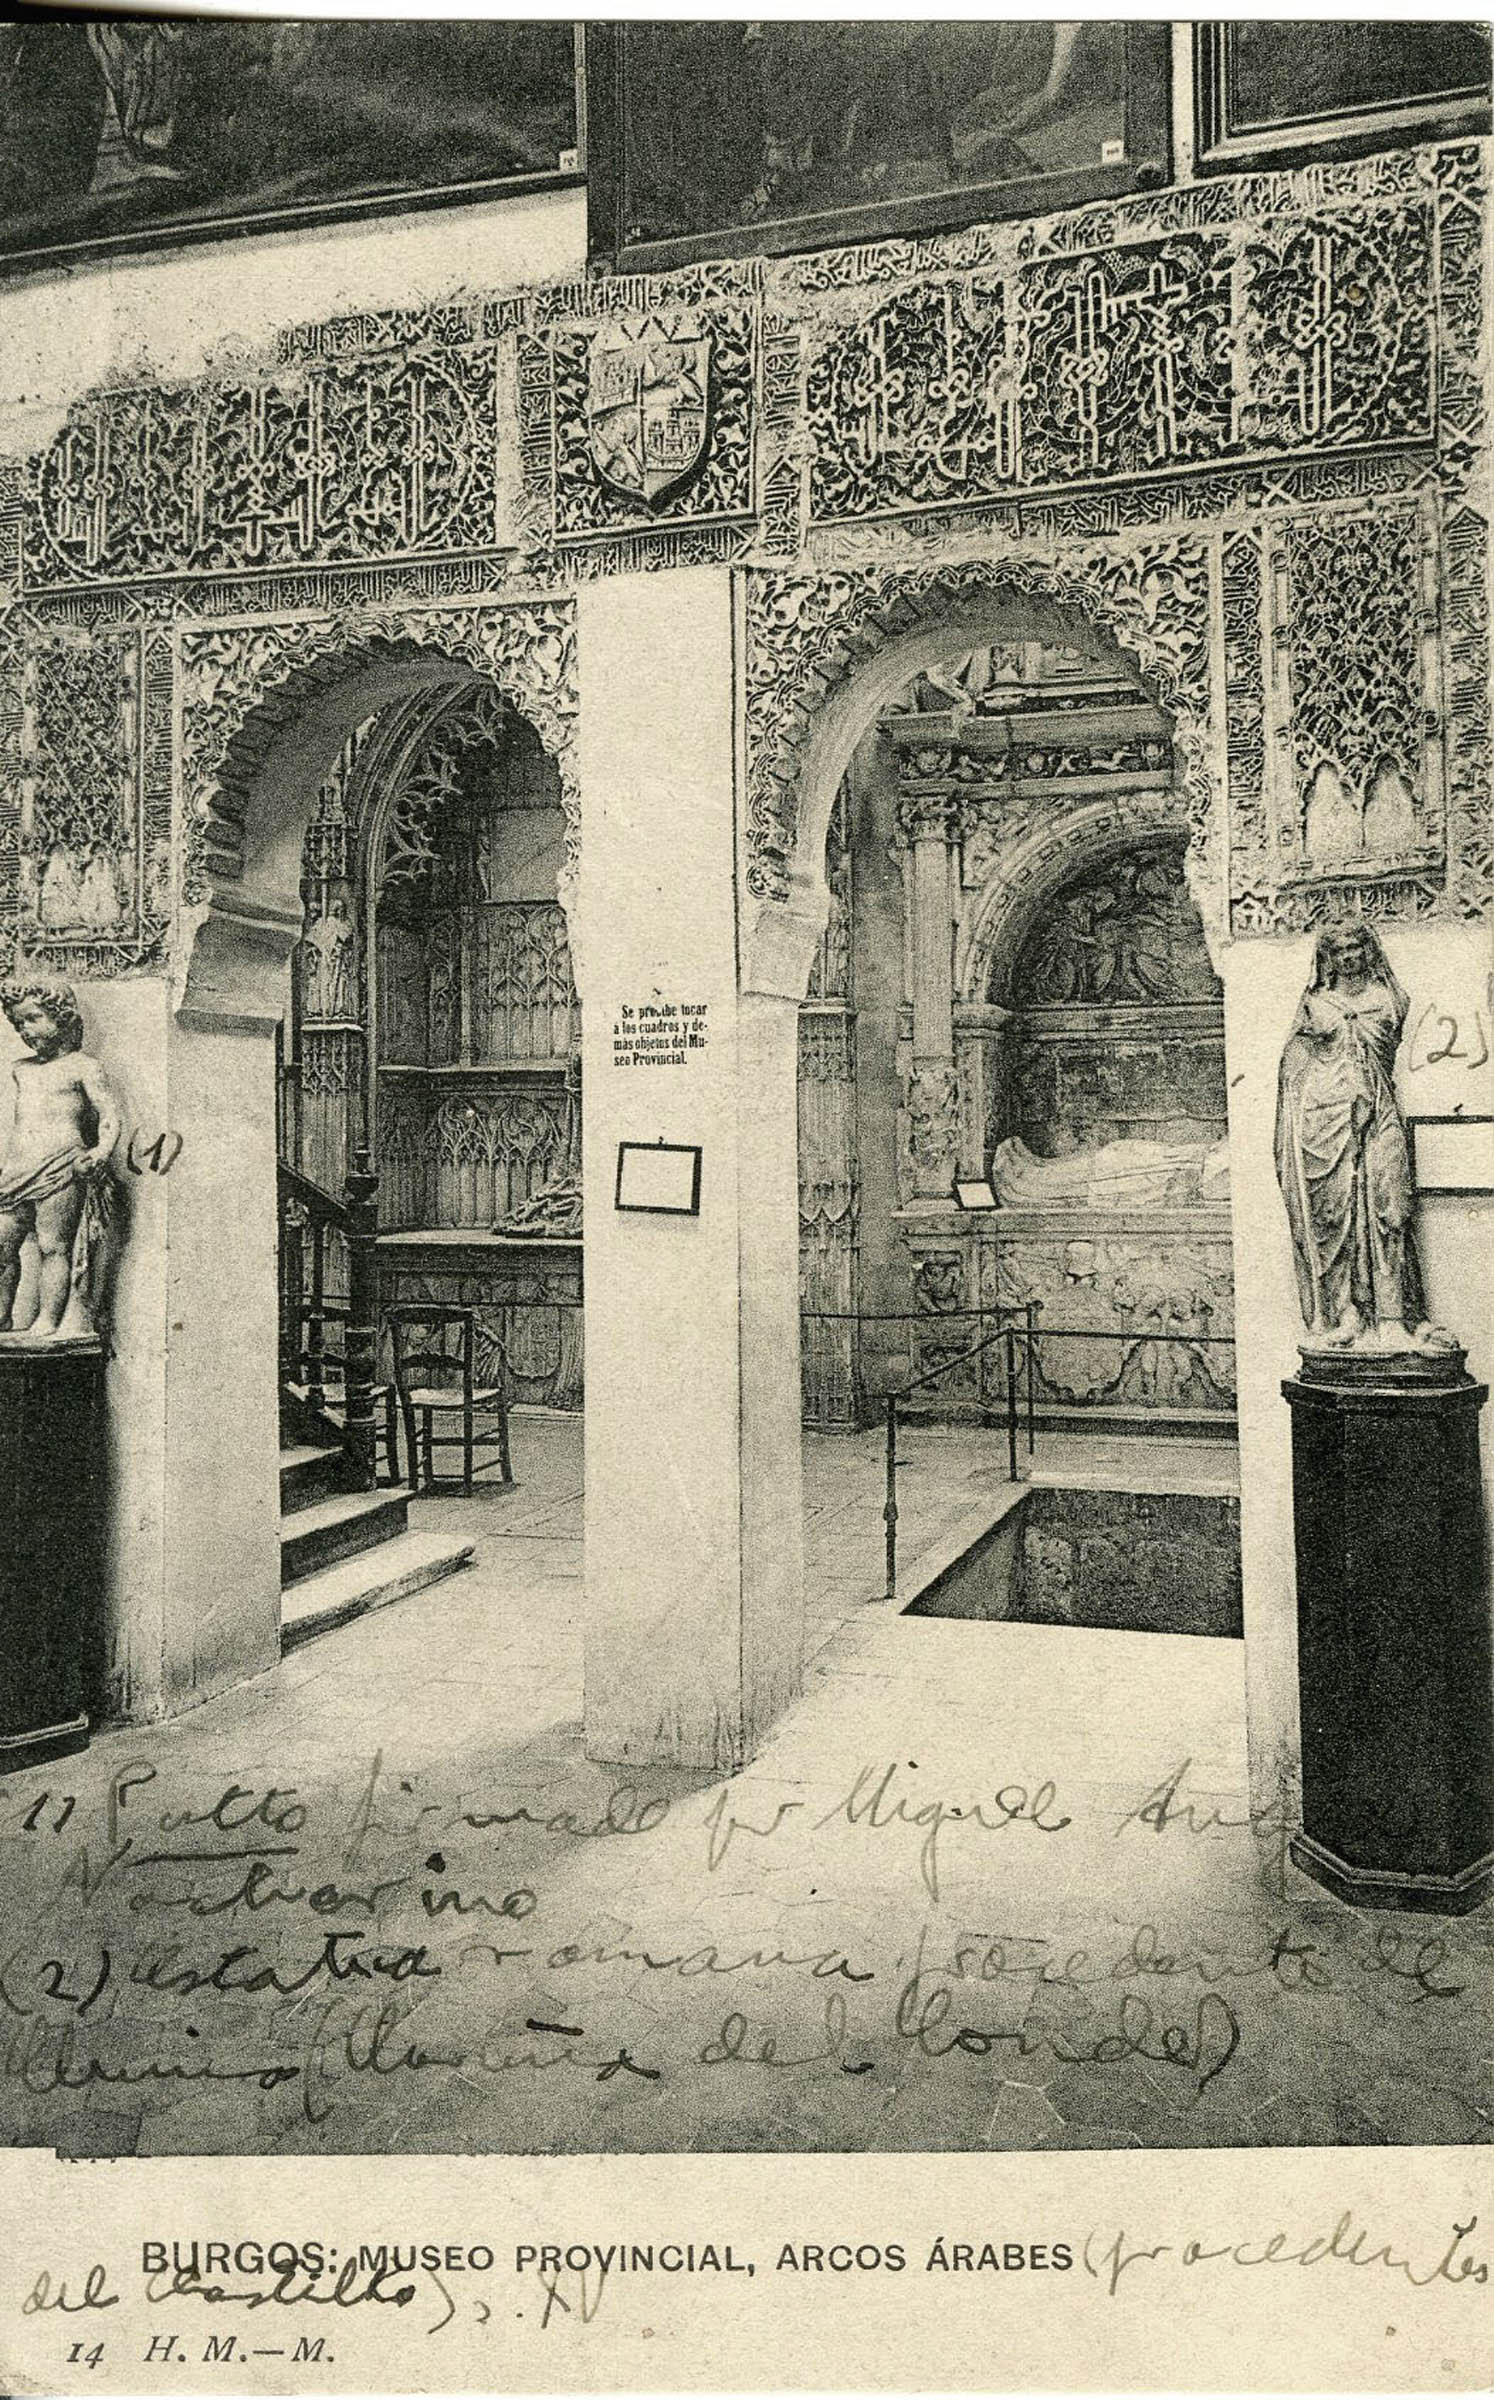 Se prohibe tocar
á los cuadros y de-
más objetos del Mu-
seo Provincial.
(1)
(2)
1) Putto firmado por Miguel Ang
Nacherino
(2) estatua romana procedente de
Clunia (Coruña del Conde)
BURGOS: MUSEO PROVINCIAL, ARCOS ÁRABES (procedentes
del Castillo) s. XV
14 H. M.—M.